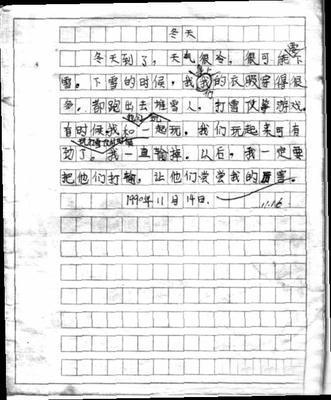 冬天
冬天到了，天气很冷，很可能下
雪。下雪的时候，我我的衣服穿得很
多，都跑出去堆雪人，打雪仗等游戏
有时候我和一起玩，我们玩起来可有
劲了。我一直输掉。以后，我一定要
把他们打输，让他们尝尝我的厉害。
1990年11月14日.
11.16